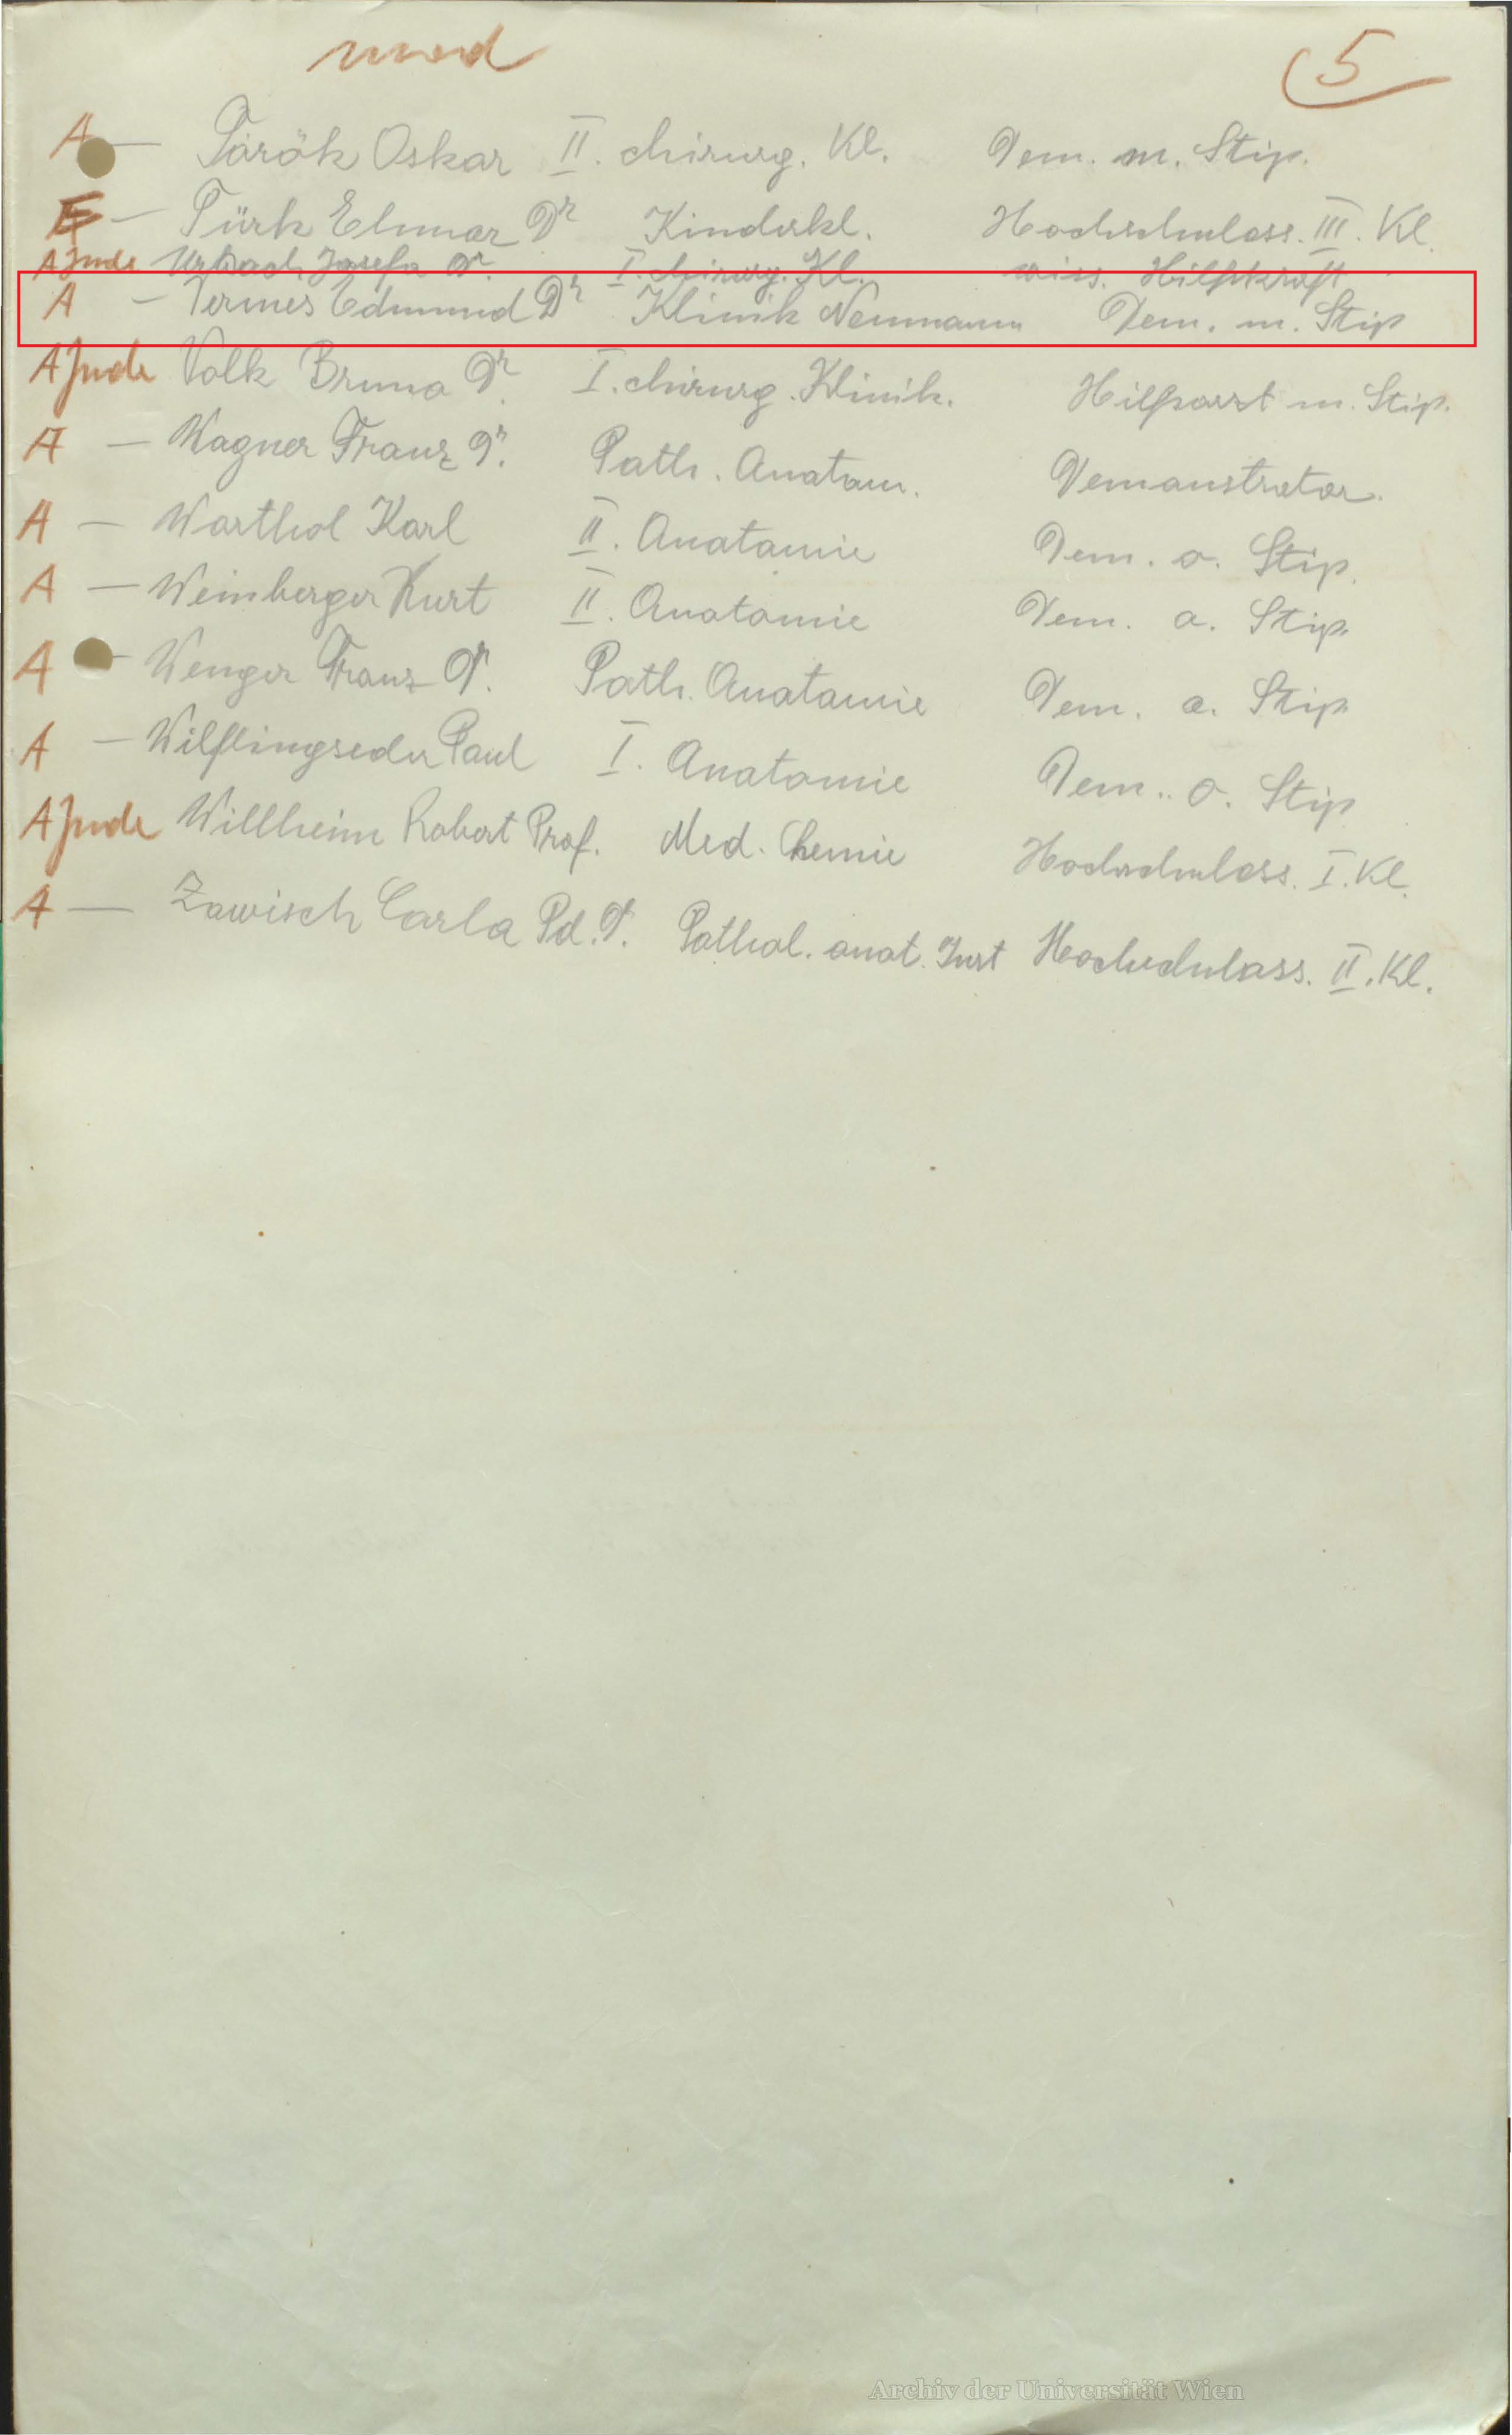 med
5
A — Török Oskar II. chirurg. Kl. Dem. m. Stip.
E — Türk Elmar Dr Kinderkl. Hochschulass. III. Kl.
A Jude Urbach Josefa Dr. I. chirurg. Kl. wiss. Hilfskraft
A — Vermes Edmund Dr Klinik Neumann Dem. m. Stip
A Jude Volk Bruno Dr. I. chirurg. Klinik. Hilfsarzt m. Stip.
A — Wagner Franz Dr. Path. Anatom. Demonstrator.
A — Warthol Karl II. Anatomie Dem. o. Stip.
A — Weinberger Kurt II. Anatomie Dem. o. Stip.
A — Wenger Franz Dr. Path. Anatomie Dem. o. Stip
A — Wilflingseder Paul I. Anatomie Dem. o. Stip
A Jude Willheim Robert Prof. Med. Chemie Hochschulass. I. Kl.
A — Zawisch Carla Pd. Dr. Pathol. anat. Inst Hochschulass. II. Kl.
Archiv der Universität Wien